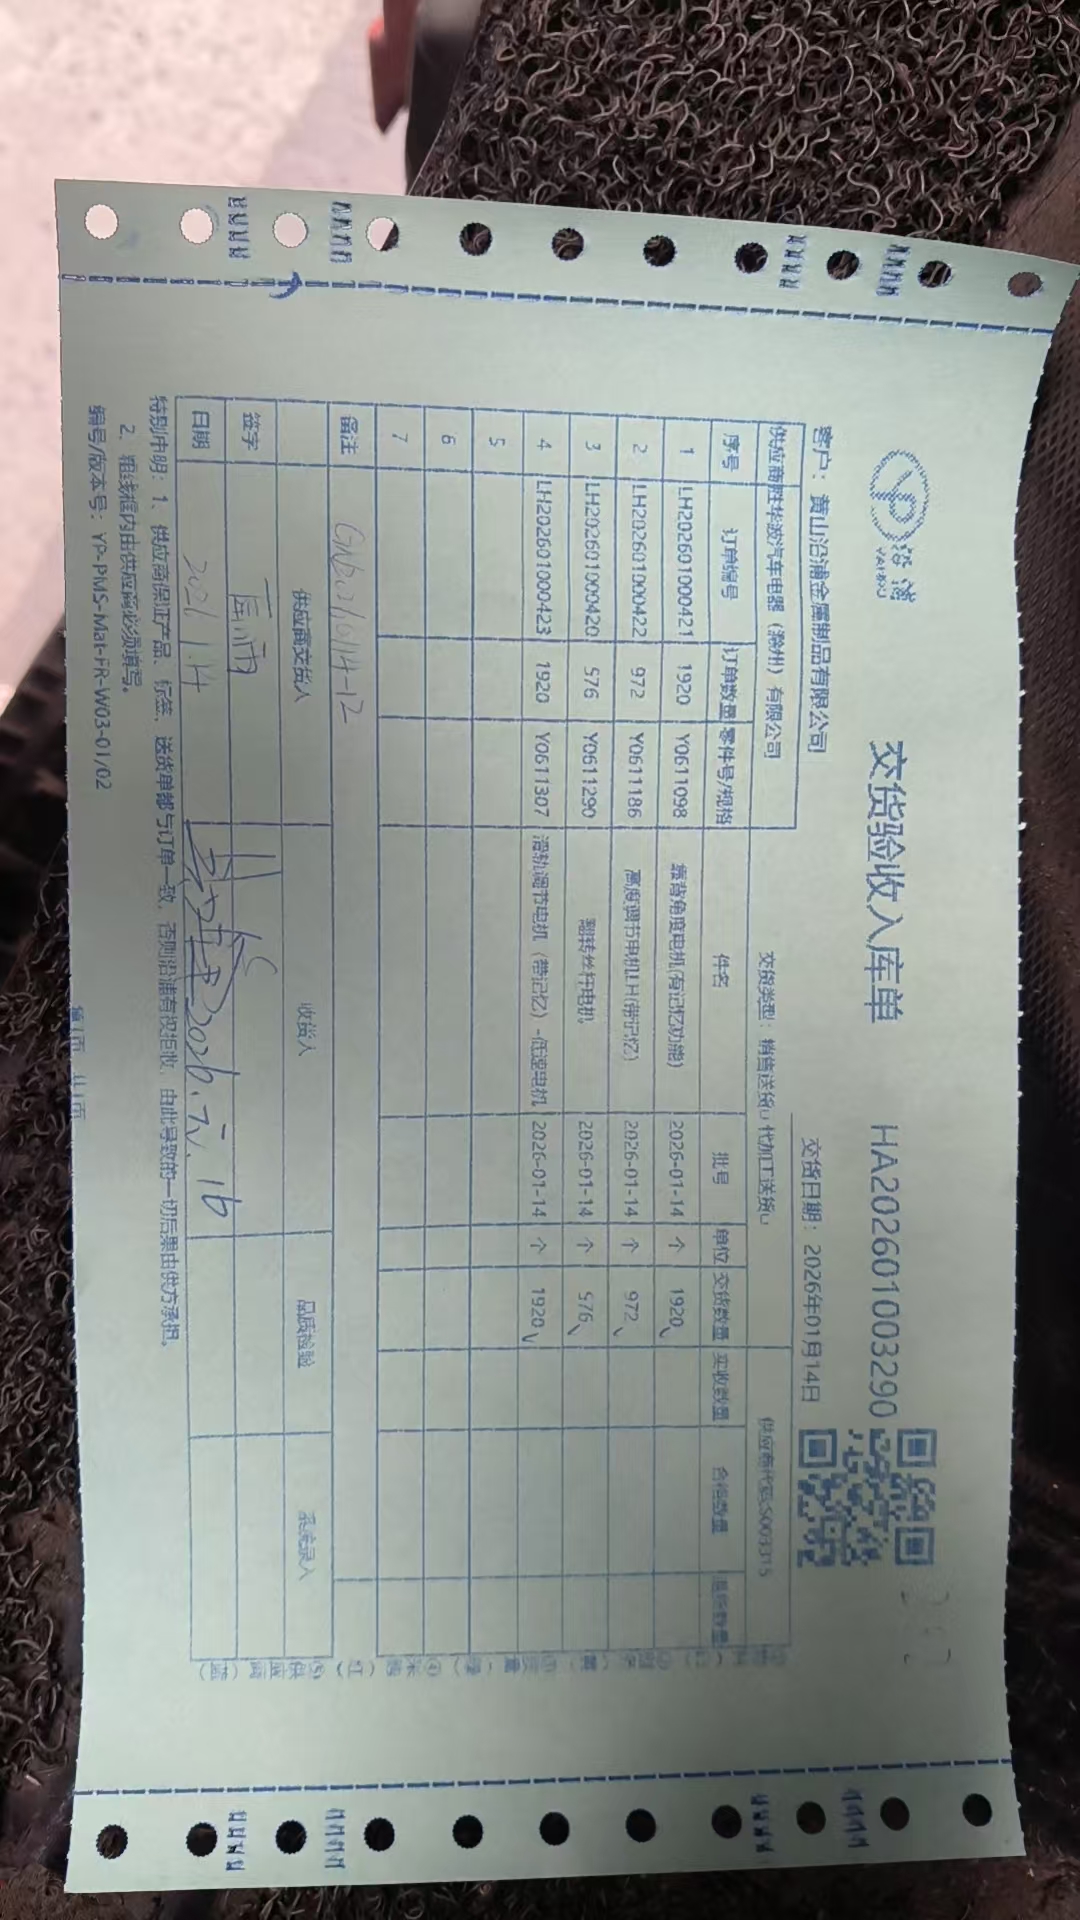 沿浦
YANPU
交货验收入库单
HA202601003290
客户：黄山沿浦金属制品有限公司
交货日期：2026年01月14日
供应商 胜华波汽车电器（滁州）有限公司 交货类型：销售送货□ 代加工送货□ 供应商代码:S003315
序号 订单编号 订单数量 零件号/规格 件名 批号 单位 交货数量 实收数量 合格数量
1 LH202601000421 1920 Y0611098 靠背角度电机(有记忆功能) 2026-01-14 个 1920
2 LH202601000422 972 Y0611186 高度调节电机LH(带记忆) 2026-01-14 个 972
3 LH202601000420 576 Y0611290 翻转丝杆电机 2026-01-14 个 576
4 LH202601000423 1920 Y0611307 滑轨调节电机（带记忆）-低速电机 2026-01-14 个 1920
5
6
7
备注
供应商交货人 收货人 品质检验 系统录入
签字
日期 2026.1.16
特别申明：1、供应商保证产品、标签、送货单都与订单一致，否则沿浦有权拒收，由此导致的一切后果由供方承担。
2、粗线框内由供应商必须填写。
编号/版本号：YP-PMS-Mat-FR-W03-01/02
第1页 共1页